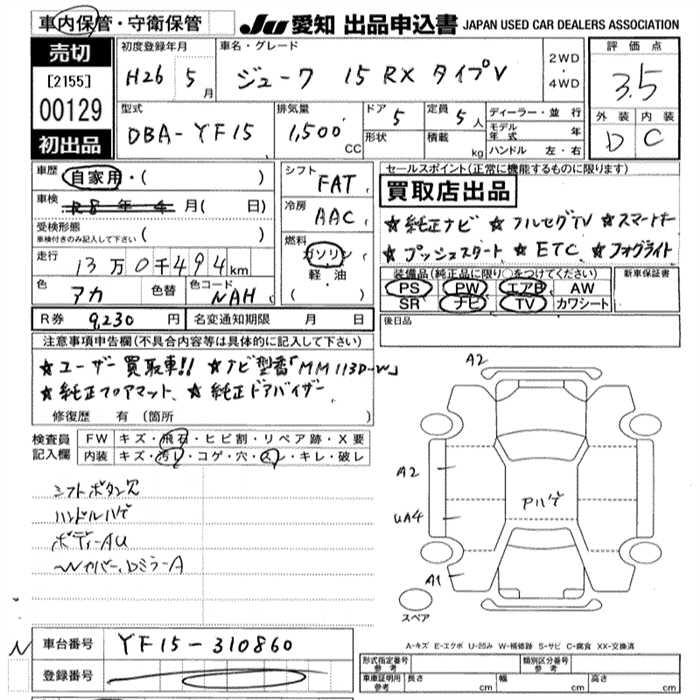 車内保管・守衛保管
JU 愛知 出品申込書 JAPAN USED CAR DEALERS ASSOCIATION
売切
[2155]
00129
初出品
初度登録年月
H26 5月
車名・グレード
ジューク 15RX タイプV
2WD
・
4WD
評価点
3.5
外装 内装
D C
型式
DBA-YF15
排気量
1,500 CC
ドア 5
形状
定員 5人
積載 kg
ディーラー・並行
モデル年式 年
ハンドル 左・右
車歴 自家用・( )
車検 R8年4月( 日)
受検形態
車検付きのみ記入して下さい ( )
走行 13万0千494km
色 アカ 色替 色コード NAH
シフト FAT
冷房 AAC
燃料
ガソリン
軽油
( )
セールスポイント(正常に機能するものに限ります)
買取店出品
★純正ナビ ★フルセグTV ★スマートキー
★プッシュスタート ★ETC ★フォグライト
装備品(純正品に限り○をつけてください)
PS PW エアB AW
SR ナビ TV カワシート
新車保証書
後日品
R券 9,230円 名変通知期限 月 日
注意事項申告欄(不具合内容等は具体的に記入して下さい)
★ユーザー買取車!! ★ナビ型番「MM113D-W」
★純正フロアマット、★純正ドアバイザー
修復歴 有(箇所 )
検査員記入欄
FW キズ・飛石・ヒビ割・リペア跡・X要
内装 キズ・汚レ・コゲ・穴・スレ・キレ・破レ
シフトボタン穴
ハンドルハゲ
ボディーAU
A2
A2
UA4
A1
Pハゲ
スペア
A-キズ E-エクボ U-凹み W-補修跡 S-サビ C-腐食 XX-交換済
車台番号 YF15-310860
登録番号
形式指定番号 参考
類別区分番号 参考
車庫証明用 参考 長さ cm 幅 cm 高さ cm